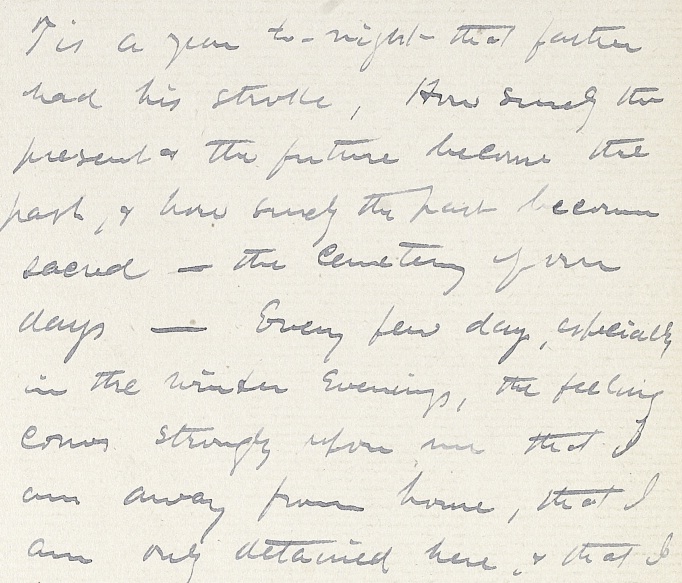 Tis a year to-night that father
had his stroke, How surely the
present & the future become the
past, & how surely the past becomes
sacred — the cemetery of our
days — Every few days, especially
in the winter Evenings, the feeling
comes strongly upon me that I
am away from home, that I
am only detained here, & that I